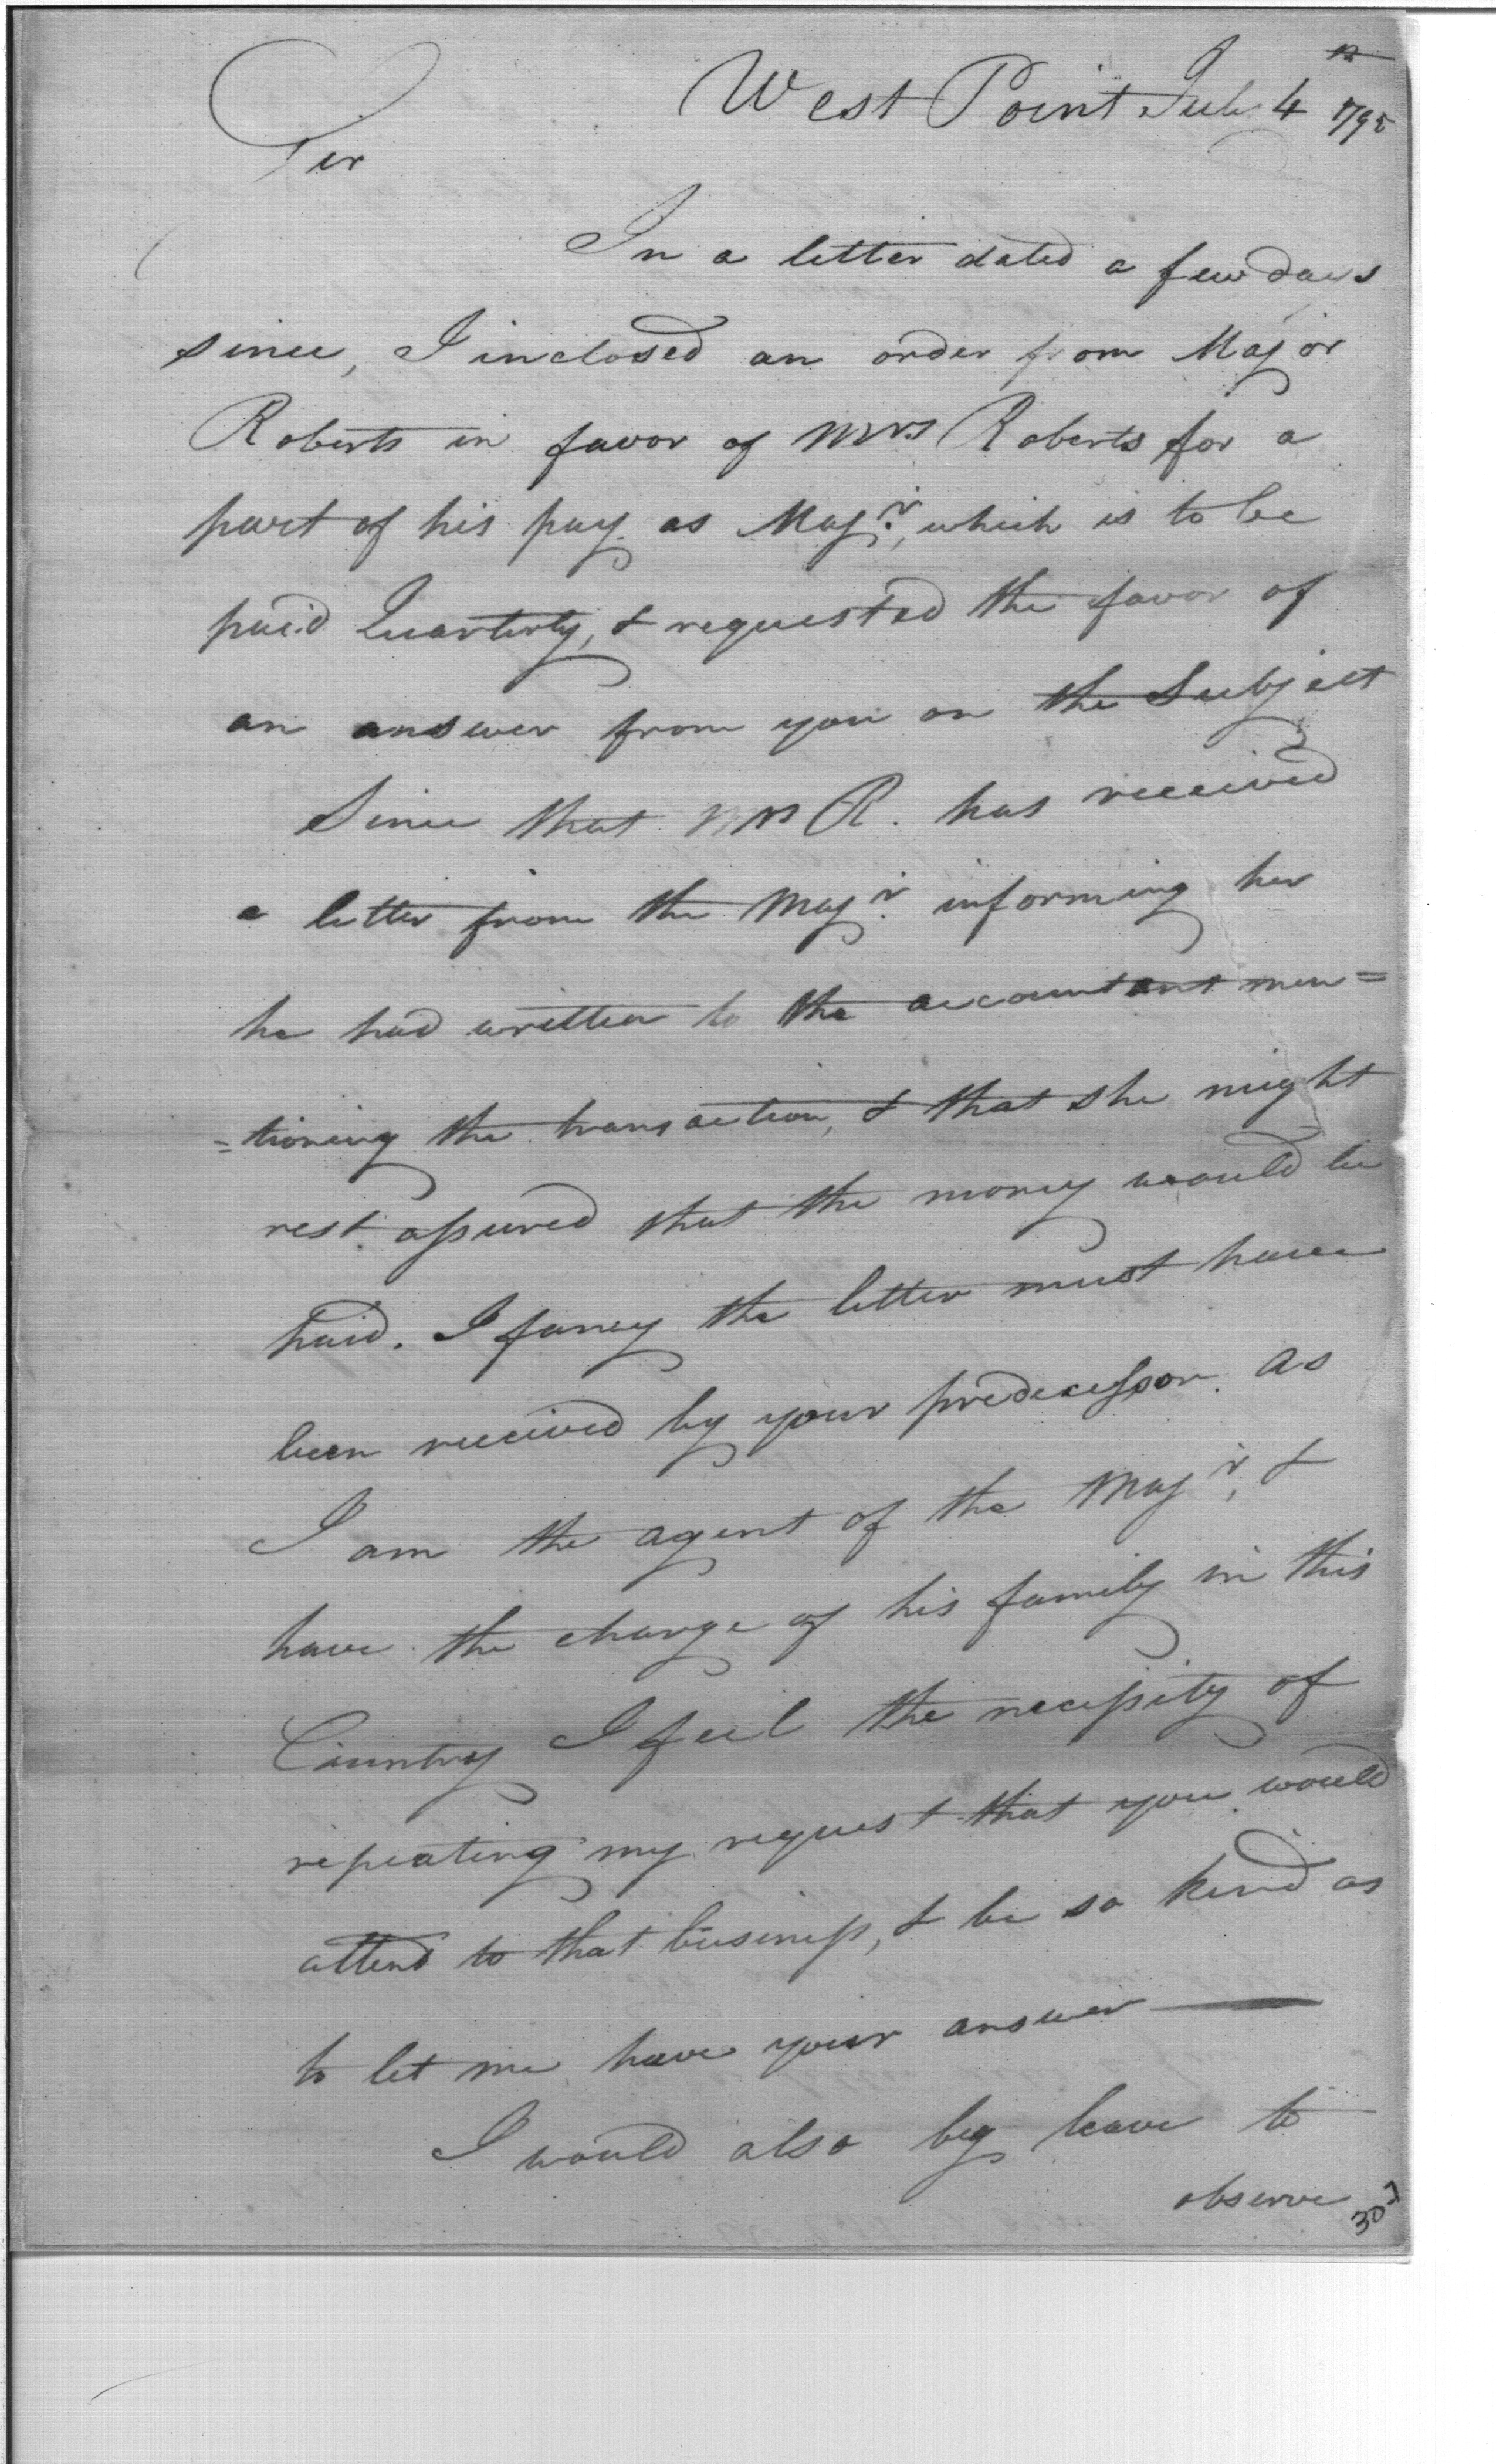 West Point July 4th 1795
Sir
In a letter dated a few days
since, I inclosed an order from Major
Roberts in favor of Mrs Roberts for a
part of his pay as Majr, which is to be
paid Quarterly, & requested the favor of
an answer from you on the Subject
Since that Mrs R. has received
a letter from the Majr. informing her
he had written to the accountant men=
=tioning the transaction, & that she might
rest assured that the money would be
paid. I fancy the letter must have
been received by your predecessor. As
I am the agent of the Majr, &
have the charge of his family in this
Country I feel the necessity of
repeating my request that you would
attend to that business, & be so kind as
to let me have your answer —
I would also beg leave to
observe